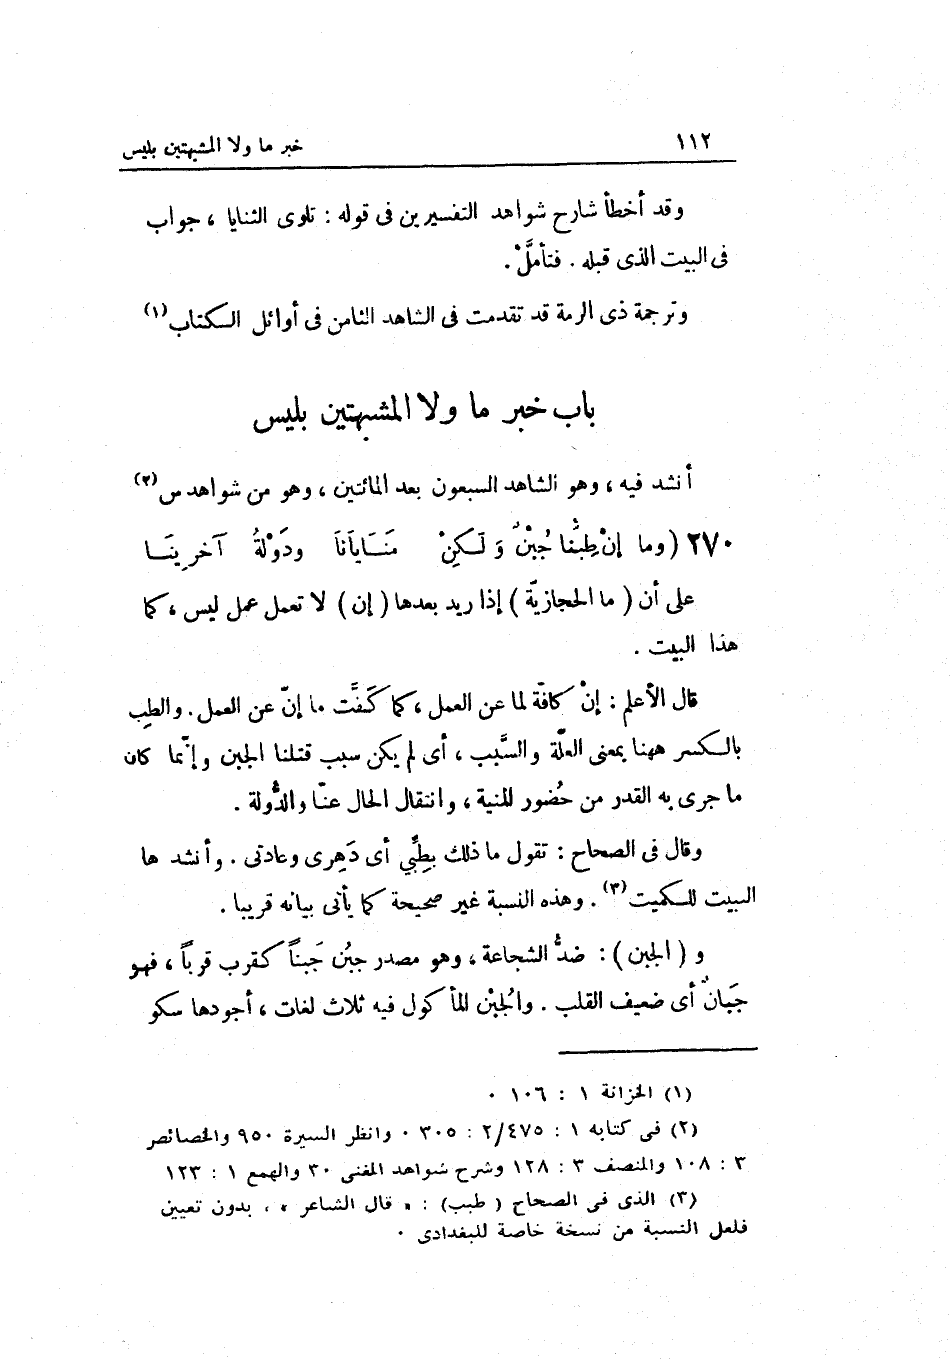 ١١٢ خبر ما ولا المشبهتين بليس
وقد أخطأ شارح شواهد التفسيرين فى قوله : تلوى الثنايا ، جواب
فى البيت الذى قبله . فتأملَّْ .
وترجمة ذى الرمة قد تقدمت فى الشاهد الثامن فى أوائل الكتاب(١)
باب خبر ما ولا المشبهتين بليس
أنشد فيه ، وهو الشاهد السبعون بعد المائتين ، وهو من شواهد س(٢)
٢٧٠ (وما إنْ طِبُّنا جُبْنٌ وَلَكِنْ مَنَايَانَا ودَوْلةُ آخرِينَا
على أن ( ما الحجازيّة ) إذا زيد بعدها ( إن ) لا تعمل عمل ليس ، كما
هذا البيت .
قال الأعلم : إنْ كافّة لما عن العمل ، كما كَفَّت ما إنّ عن العمل . والطِب
بالكسر ههنا بمعنى العلّة والسَّبب ، أى لم يكن سبب قتلنا الجبن وإنّما كان
ما جرى به القدر من حُضور المنية ، وانتقال الحال عنّا والدُّولة .
وقال فى الصحاح : تقول ما ذلك بِطِبِّي أى دَهرِى وعادتى . وأنشد ها
البيت للكميت(٣) . وهذه النسبة غير صحيحة كما يأتى بيانه قريبا .
و ( الجبن ) : ضدُّ الشجاعة ، وهو مصدر جبُن جَبناً كقرب قرباً ، فهو
جَبَانٌ أى ضعيف القلب . والجُبْن المأكول فيه ثلاث لغات ، أجودها سكو
(١) الخزانة ١ : ١٠٦ .
(٢) فى كتابه ١ : ٤٧٥/٢ : ٣٠٥ . وانظر السيرة ٩٥٠ والخصائص
٣ : ١٠٨ والمنصف ٣ : ١٢٨ وشرح شواهد المغنى ٣٠ والهمع ١ : ١٢٣
(٣) الذى فى الصحاح ( طبب ) : « قال الشاعر » ، بدون تعيين
فلعل النسبة من نسخة خاصة للبغدادى .